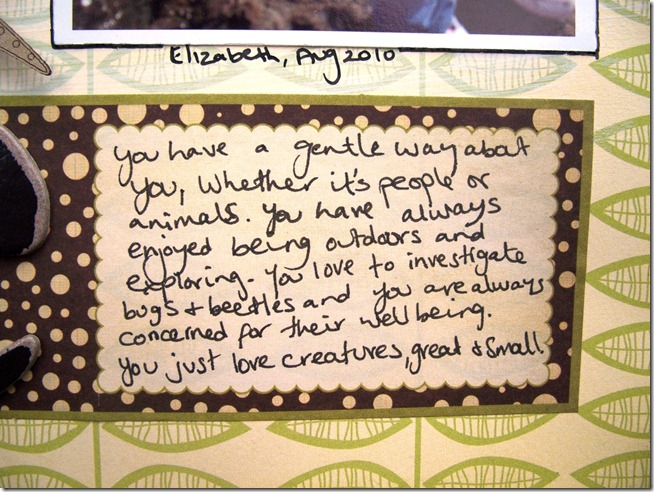 Elizabeth, Aug 2010
you have a gentle way about
you, whether it's people or
animals. you have always
enjoyed being outdoors and
exploring. you love to investigate
bugs & beetles and you are always
concerned for their well being.
you just love creatures, great & small.